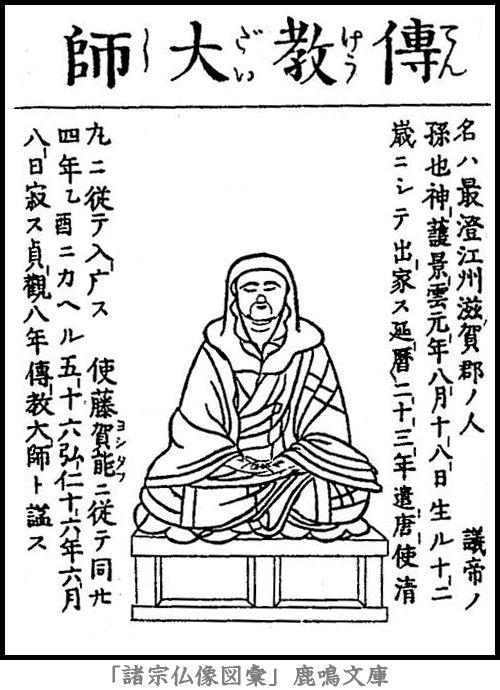 傳教大師
てんけうざいし
名ハ最澄江州滋賀郡ノ人 議帝ノ
孫也神護景雲元年八月十八日生ル十二
歳ニシテ出家ス延暦二十三年遣唐使清
九ニ従テ入广ス 使藤賀能ニ従テ同廿
四年乙酉ニカヘル五十六弘仁十六年六月
八日寂ス貞觀八年傳教大師ト謚ス
「諸宗仏像図彙」鹿鳴文庫